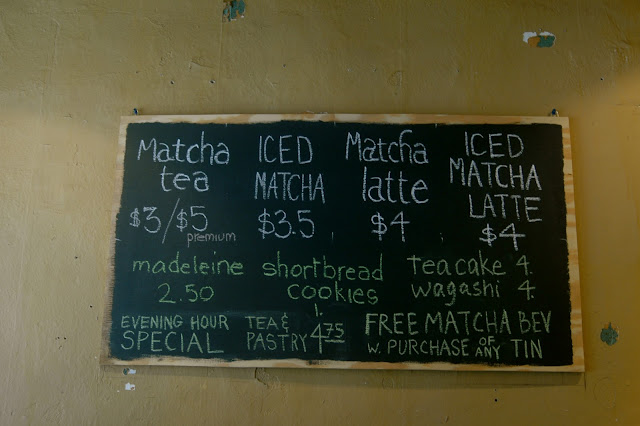 Matcha tea
$3/$5 premium
ICED MATCHA
$3.5
Matcha latte
$4
ICED MATCHA LATTE
$4
madeleine
2.50
shortbread
cookies
1.
teacake 4.
wagashi 4.
EVENING HOUR
SPECIAL
TEA &
PASTRY 4.75
FREE MATCHA BEV
W. PURCHASE OF ANY TIN